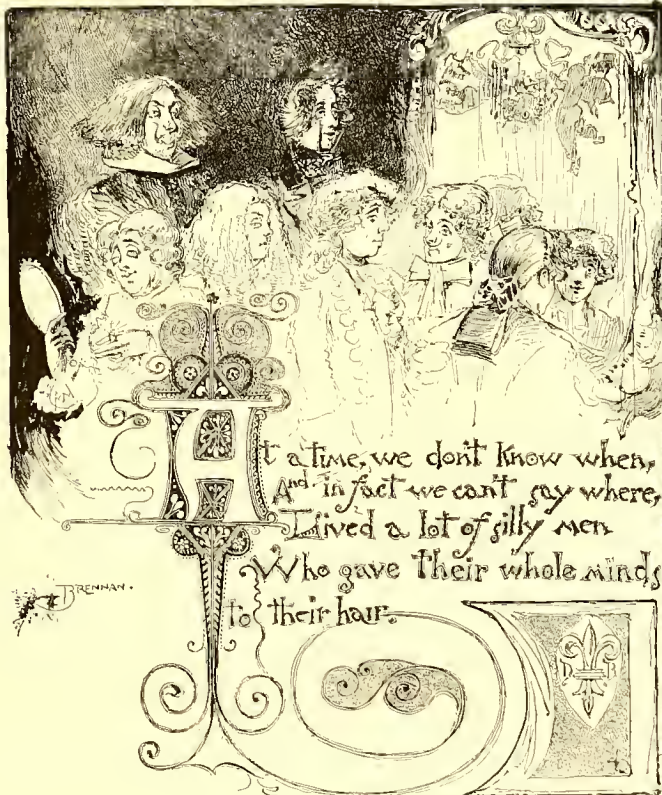 At a time, we don't know when,
And in fact we can't say where,
Lived a lot of silly men
Who gave their whole minds
to their hair.
BRENNAN.
D B